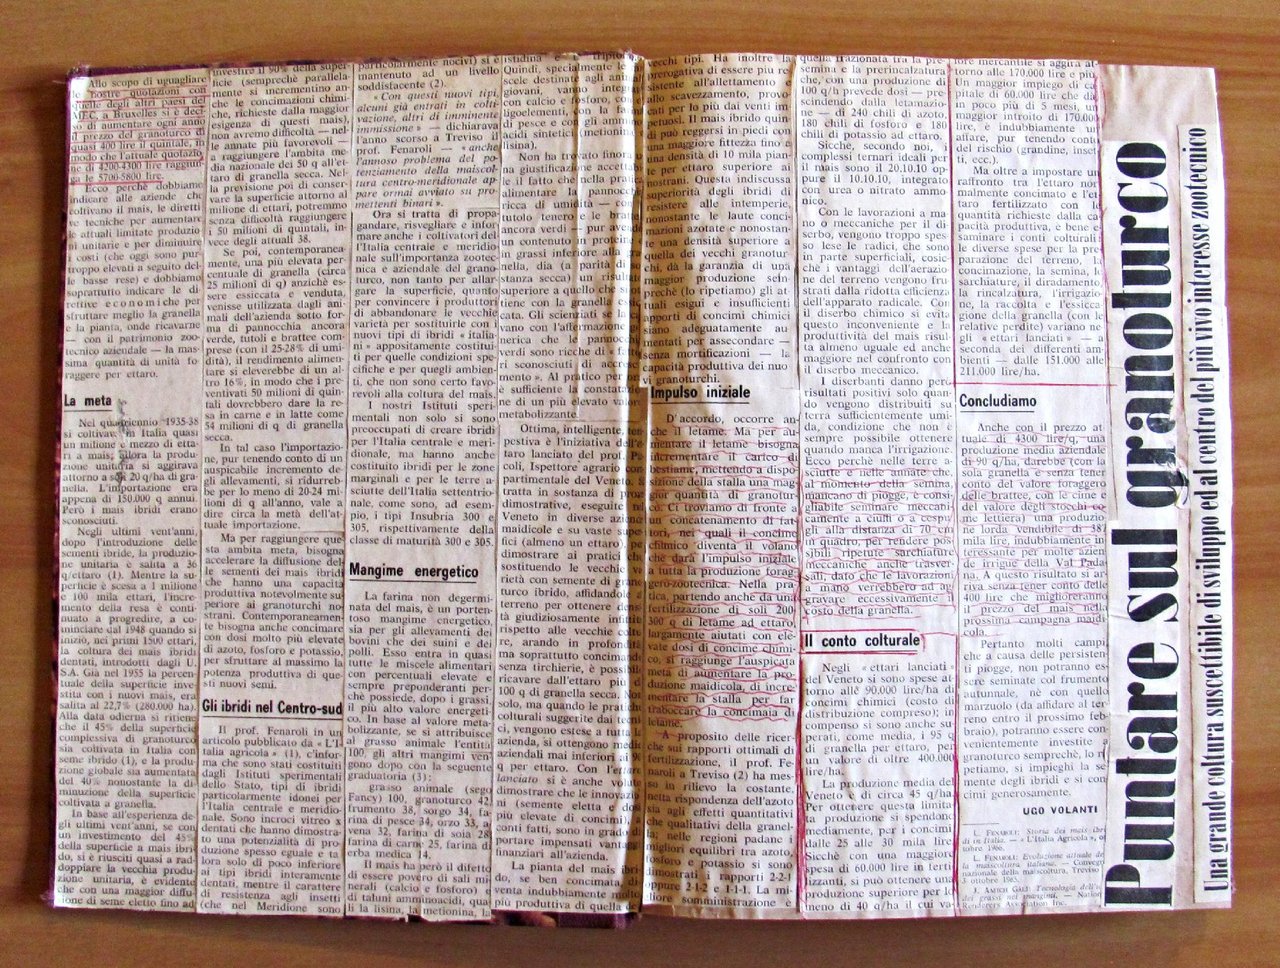 Puntare sul granoturco
Una grande coltura suscettibile di sviluppo ed al centro del più vivo interesse zootecnico
Allo scopo di uguagliare
le nostre quotazioni con
quelle degli altri paesi del
MEC, a Bruxelles si è deci-
so di aumentare ogni anno
il prezzo del granoturco di
quasi 400 lire il quintale, in
modo che l'attuale quotazio-
ne di 4200-4300 lire raggiun-
ga le 5700-5800 lire.
Ecco perchè dobbiamo
indicare alle aziende che
coltivano il mais, le diretti-
ve tecniche per aumentare
le attuali limitate produzio-
ni unitarie e per diminuire
i costi (che oggi sono pur-
troppo elevati a seguito del-
le basse rese) e dobbiamo
soprattutto indicare le di-
rettive economiche per
sfruttare meglio la granella
e la pianta, onde ricavarne
— con il patrimonio zoo-
tecnico aziendale — la mas-
sima quantità di unità fo-
raggere per ettaro.
La meta
Nel quadriennio 1935-38
si coltivava in Italia quasi
un milione e mezzo di etta-
ri a mais; allora la produ-
zione unitaria si aggirava
attorno a soli 20 q/ha di gra-
nella. L'importazione era
appena di 150.000 q annui.
Però i mais ibridi erano
sconosciuti.
Negli ultimi vent'anni,
dopo l'introduzione delle
sementi ibride, la produzio-
ne unitaria è salita a 36
q/ettaro (1). Mentre la su-
perficie è scesa a 1 milione
e 100 mila ettari, l'incre-
mento della resa è conti-
nuato a progredire, a co-
minciare dal 1948 quando si
iniziò, nei primi 1500 ettari,
la coltura dei mais ibridi
dentati, introdotti dagli U.
S.A. Già nel 1955 la percen-
tuale della superficie inve-
stita con i nuovi mais, era
salita al 22,7% (280.000 ha).
Alla data odierna si ritiene
che il 45% della superficie
complessiva di granoturco
sia coltivata in Italia con
seme ibrido (1), e la produ-
zione globale sia aumentata
del 40% nonostante la di-
minuzione della superficie
coltivata a granella.
In base all'esperienza de-
gli ultimi vent'anni, se con
un investimento del 45%
della superficie a mais ibri-
do, si è riusciti quasi a rad-
doppiare la vecchia produ-
zione unitaria, è evidente
che con una maggior diffu-
sione di seme eletto fino ad
investire il 90% della super-
ficie (sempreche parallela-
mente si incrementino an-
che le concimazioni chimi-
che, richieste dalla maggior
esigenza di questi mais),
non avremo difficoltà — nel-
le annate più favorevoli —
a raggiungere l'ambita me-
dia nazionale dei 50 q all'et-
taro di granella secca. Nel-
la previsione poi di conser-
vare la superficie attorno al
milione di ettari, potremmo
senza difficoltà raggiungere
i 50 milioni di quintali, in-
vece degli attuali 38.
Se poi, contemporanea-
mente, una più elevata per-
centuale di granella (circa
25 milioni di q) anzichè es-
sere essiccata e venduta,
venisse utilizzata dagli ani-
mali dell'azienda sotto for-
ma di pannocchia ancora
verde, tutoli e brattee com-
prese (con il 25-28% di umi-
dità), il rendimento alimen-
tare si eleverebbe di un al-
tro 16%, in modo che i pre-
ventivati 50 milioni di quin-
tali dovrebbero dare la re-
sa in carne e in latte come
54 milioni di q di granella
secca.
In tal caso l'importazio-
ne, pur tenendo conto di un
auspicabile incremento de-
gli allevamenti, si ridurreb-
be per lo meno di 20-24 mi-
lioni di q all'anno, vale a
dire circa la metà dell'at-
tuale importazione.
Ma per raggiungere que-
sta ambita meta, bisogna
accelerare la diffusione del-
le sementi dei mais ibridi
che hanno una capacità
produttiva notevolmente su-
periore ai granoturchi no-
strani. Contemporaneamen-
te bisogna anche concimare
con dosi molto più elevate
di azoto, fosforo e potassio,
per sfruttare al massimo la
potenza produttiva di que-
sti nuovi semi.
Gli ibridi nel Centro-sud
Il prof. Fenaroli in un
articolo pubblicato da « L'I-
talia agricola » (1), c'infor-
ma che sono stati costituiti
dagli Istituti sperimentali
dello Stato, tipi di ibridi
particolarmente idonei per
l'Italia centrale e meridio-
nale. Sono incroci vitreo x
dentati che hanno dimostra-
to una potenzialità di produ-
zione spesso eguale e ta-
lora solo di poco inferiore
dei tipi ibridi interamente
dentati, mentre il carattere
di resistenza agli insetti
(che nel Meridione sono
particolarmente nocivi) si è
mantenuto ad un livello
soddisfacente (2).
« Con questi nuovi tipi,
alcuni già entrati in colti-
vazione, altri di imminente
immissione » — dichiarava
l'anno scorso a Treviso il
prof. Fenaroli — « anche
l'annoso problema del po-
tenziamento della maiscol-
tura centro-meridionale ap-
pare ormai avviato su pro-
mettenti binari ».
Ora si tratta di propa-
gandare, risvegliare e infor-
mare anche i coltivatori del-
l'Italia centrale e meridio-
nale sull'importanza zootec-
nica e aziendale del grano-
turco, non tanto per allar-
gare la superficie, quanto
per convincere i produttori
di abbandonare le vecchie
varietà per sostituirle con i
nuovi tipi di ibridi « italia-
ni » appositamente costituiti
per quelle condizioni speci-
fiche e per quegli ambien-
ti, che non sono certo favo-
revoli alla coltura del mais.
I nostri Istituti speri-
mentali non solo si sono
preoccupati di creare ibridi
per l'Italia centrale e meri-
dionale, ma hanno anche
costituito ibridi per le zone
marginali e per le terre a-
sciutte dell'Italia settentrio-
nale, come sono, ad esem-
pio, i tipi Insubria 300 e
305, rispettivamente della
classe di maturità 300 e 305.
Mangime energetico
La farina non degermi-
nata del mais, è un porten-
toso mangime energetico,
sia per gli allevamenti dei
bovini che dei suini e dei
polli. Esso entra in quasi
tutte le miscele alimentari
con percentuali elevate e
sempre preponderanti per-
chè possiede, dopo i grassi,
il più alto valore energeti-
co. In base al valore meta-
bolizzante, se si attribuisce
al grasso animale l'entità
100, gli altri mangimi ven-
gono dopo con la seguente
graduatoria (3):
grasso animale (sego
Fancy) 100, granoturco 42,
frumento 38, sorgo 34, fa-
rina di pesce 34, orzo 33, a-
vena 32, farina di soia 28,
farina di carne 25, farina di
erba medica 14.
Il mais ha però il difetto
di essere povero di sali mi-
nerali (calcio e fosforo) e
di taluni amminoacidi, qua-
li la lisina, la metionina, la
Quindi, specialmente le
miscele destinate agli animali
giovani, vanno integrate
con calcio e fosforo, con
acidi sintetici (metionina e
lisina).
Non ha trovato finora u-
na giustificazione accettabi-
le il fatto che nella pratica
alimentare la pannocchia
ricca di umidità — con il
tutolo tenero e le brattee
ancora verdi — pur avendo
un contenuto in proteina e
in grassi inferiore alla gra-
nella, dia (a parità di so-
stanza secca) un risultato
superiore a quello che si ot-
tiene con la granella essic-
cata. Gli scienziati se la ca-
vano con l'affermazione ge-
nerica che le pannocchie
verdi sono ricche di fatto-
ri sconosciuti di accresci-
mento ». Al pratico però
è sufficiente la constatazio-
ne di un più elevato valore
metabolizzante.
Ottima, intelligente, tem-
pestiva è l'iniziativa dell'I-
spettore agrario com-
partimentale del Veneto. Si
tratta in sostanza di prove
dimostrative, eseguite nel
Veneto in diverse aziende
maidicole e su vaste superfi-
ci (almeno un ettaro) per
dimostrare ai pratici che
sostituendo le vecchie va-
rietà con semente di grano-
turco ibrido, affidandole a
terreno per ottenere densi-
tà giudiziosamente infittite
rispetto alle vecchie coltu-
re, arando in profondità
e soprattutto concimando
senza tirchierie, è possibile
ricavare dall'ettaro più di
100 q di granella secca. Non
solo, ma quando le pratiche
colturali suggerite dai tecni-
ci, vengono estese a tutta la
azienda, si ottengono medie
aziendali mai inferiori ai 90
q per ettaro. Con l'ettaro
lanciato si è anche voluto
dimostrare che le innovazio-
ni (semente eletta e dosi
più elevate di concimi), a
conti fatti, sono in grado di
portare impensati vantaggi
finanziari all'azienda.
La pianta del mais ibri-
do, se ben concimata, di-
venta indubbiamente molto
vecchi tipi. Ha inoltre la
prerogativa di essere più re-
sistente all'allettamento e
allo scavezzamento, provo-
cati per lo più dai venti im-
petuosi. Il mais ibrido quin-
di può reggersi in piedi con
una maggiore fittezza fino ad
una densità di 10 mila pian-
te per ettaro superiore ai
nostrani. Questa indiscussa
superiorità degli ibridi di
resistere alle intemperie,
nonostante le laute conci-
mazioni azotate e nonostan-
te una densità superiore a
quella dei vecchi granotur-
chi, dà la garanzia di una
maggior produzione sem-
prechè (lo ripetiamo) gli at-
tuali esigui e insufficienti
apporti di concimi chimici
siano adeguatamente au-
mentati per assecondare —
senza mortificazioni — la
capacità produttiva dei nuo-
vi granoturchi.
Impulso iniziale
D'accordo, occorre an-
che il letame. Ma per au-
mentare il letame bisogna
incrementare il carico di
bestiame, mettendo a dispo-
sizione della stalla una mag-
gior quantità di granotur-
co. Ci troviamo di fronte a
un concatenamento di fat-
tori, nei quali il concime
chimico diventa il volano
che darà l'impulso iniziale
a tutta la produzione forag-
gero-zootecnica. Nella pra-
tica, partendo anche da una
fertilizzazione di soli 200-
300 q di letame ad ettaro,
largamente aiutati con ele-
vate dosi di concime chimi-
co, si raggiunge l'auspicata
meta di aumentare la pro-
duzione maidicola, di incre-
mentare la stalla per far
traboccare la concimaia di
letame.
A proposito delle ricer-
che sui rapporti ottimali di
fertilizzazione, il prof. Fe-
naroli a Treviso (2) ha mes-
so in rilievo la costante
netta rispondenza dell'azoto
sia agli effetti quantitativi
che qualitativi della granel-
la; nelle regioni padane i
migliori equilibri tra azoto,
fosforo e potassio si sono
dimostrati i rapporti 2-2-1
oppure 2-1-2 e 1-1-1. La mi-
gliore somministrazione è
quella frazionata tra la pre-
semina e la prerincalzatura
che, con una produzione di
100 q/ha prevede dosi — pre-
scindendo dalla letamazio-
ne — di 240 chili di azoto,
180 chili di fosforo e 180
chili di potassio ad ettaro.
Sicchè, secondo noi, i
complessi ternari ideali per
il mais sono il 20.10.10 op-
pure il 10.10.10, integrato
con urea o nitrato ammo-
nico.
Con le lavorazioni a ma-
no o meccaniche per il di-
serbo, vengono troppo spes-
so lese le radici, che sono
in parte superficiali, cosic-
chè i vantaggi dell'aerazio-
ne del terreno vengono fru-
strati dalla ridotta efficienza
dell'apparato radicale. Con
il diserbo chimico si evita
questo inconveniente e la
produttività del mais risul-
ta almeno uguale ed anche
maggiore nel confronto con
il diserbo meccanico.
I diserbanti danno però
risultati positivi solo quan-
do vengono distribuiti su
terra sufficientemente umi-
da, condizione che non è
sempre possibile ottenere
quando manca l'irrigazione.
Ecco perchè nelle terre a-
sciutte e nelle annate che,
al momento della semina,
mancano di piogge, è consi-
gliabile seminare meccani-
camente a ciuffi o a cospu-
gli alla distanza di 70 cm
in quadro, per rendere pos-
sibili ripetute sarchiature
meccaniche anche trasver-
sali, dato che le lavorazioni
a mano verrebbero ad ag-
gravare eccessivamente il
costo della granella.
Il conto colturale
Negli « ettari lanciati »
del Veneto si sono spese at-
torno alle 90.000 lire/ha di
concimi chimici (costo di
distribuzione compreso); in
compenso si sono anche su-
perati, come media, i 95 q
di granella per ettaro, per
un valore di oltre 400.000
lire/ha.
La produzione media del
Veneto è di circa 45 q/ha.
Per ottenere questa limitata
produzione si spendono
mediamente, per i concimi,
dalle 25 alle 30 mila lire.
Sicchè con una maggiore
spesa di 60.000 lire in ferti-
lizzanti, si può ottenere una
produzione superiore per lo
meno di 40 q/ha il cui va-
lore mercantile si aggira at-
torno alle 170.000 lire e più.
Un maggior impiego di ca-
pitale di 60.000 lire che dà
in poco più di 5 mesi, un
maggior introito di 170.000
lire, è indubbiamente un
affare, pur tenendo conto
dei rischi (grandine, inset-
ti, ecc.).
Ma oltre a impostare un
raffronto tra l'ettaro nor-
malmente concimato e l'et-
taro fertilizzato con le
quantità richieste dalla ca-
pacità produttiva, è bene e-
saminare i conti colturali e
le diverse spese per la pre-
parazione del terreno, la
concimazione, la semina, le
sarchiature, il diradamento,
la rincalzatura, l'irrigazio-
ne, la raccolta e l'essicca-
zione della granella (con le
relative perdite) variano ne-
gli « ettari lanciati » — a
seconda dei differenti am-
bienti — dalle 151.000 alle
211.000 lire/ha.
Concludiamo
Anche con il prezzo at-
tuale di 4300 lire/q, una
produzione media aziendale
di 90 q/ha, darebbe (con la
sola granella e senza tener
conto del valore foraggero
delle brattee, con le cime e
del valore degli stocchi co-
me lettiera) una produzio-
ne lorda vendibile di 387
mila lire, indubbiamente in-
teressante per molte azien-
de irrigue della Val Pada-
na. A questo risultato si ar-
riva senza tener conto delle
400 lire che miglioreranno
il prezzo del mais nella
prossima campagna maidi-
cola.
Purtanto molti campi
che a causa delle persisten-
ti piogge, non potranno es-
sere seminate col frumento
autunnale, nè con quello
marzuolo (da affidare al ter-
reno entro il prossimo feb-
braio), potranno essere con-
venientemente investite a
granoturco sempreché, lo ri-
peto, si impieghi la se-
mente degli ibridi e si con-
cimi generosamente.
UGO VOLANTI
L. FENAROLI: Storia dei mais ibri-
di in Italia. — « L'Italia Agricola », ot-
tobre 1966.
L. FENAROLI: Evoluzione attuale del-
la maiscoltura italiana. — Convegno
nazionale della maiscoltura, Treviso
ottobre 1965.
J. AMICH GALÍ: Tecnologia dell'uso
dei grassi nei mangimi. — National
Renderers Association Inc.